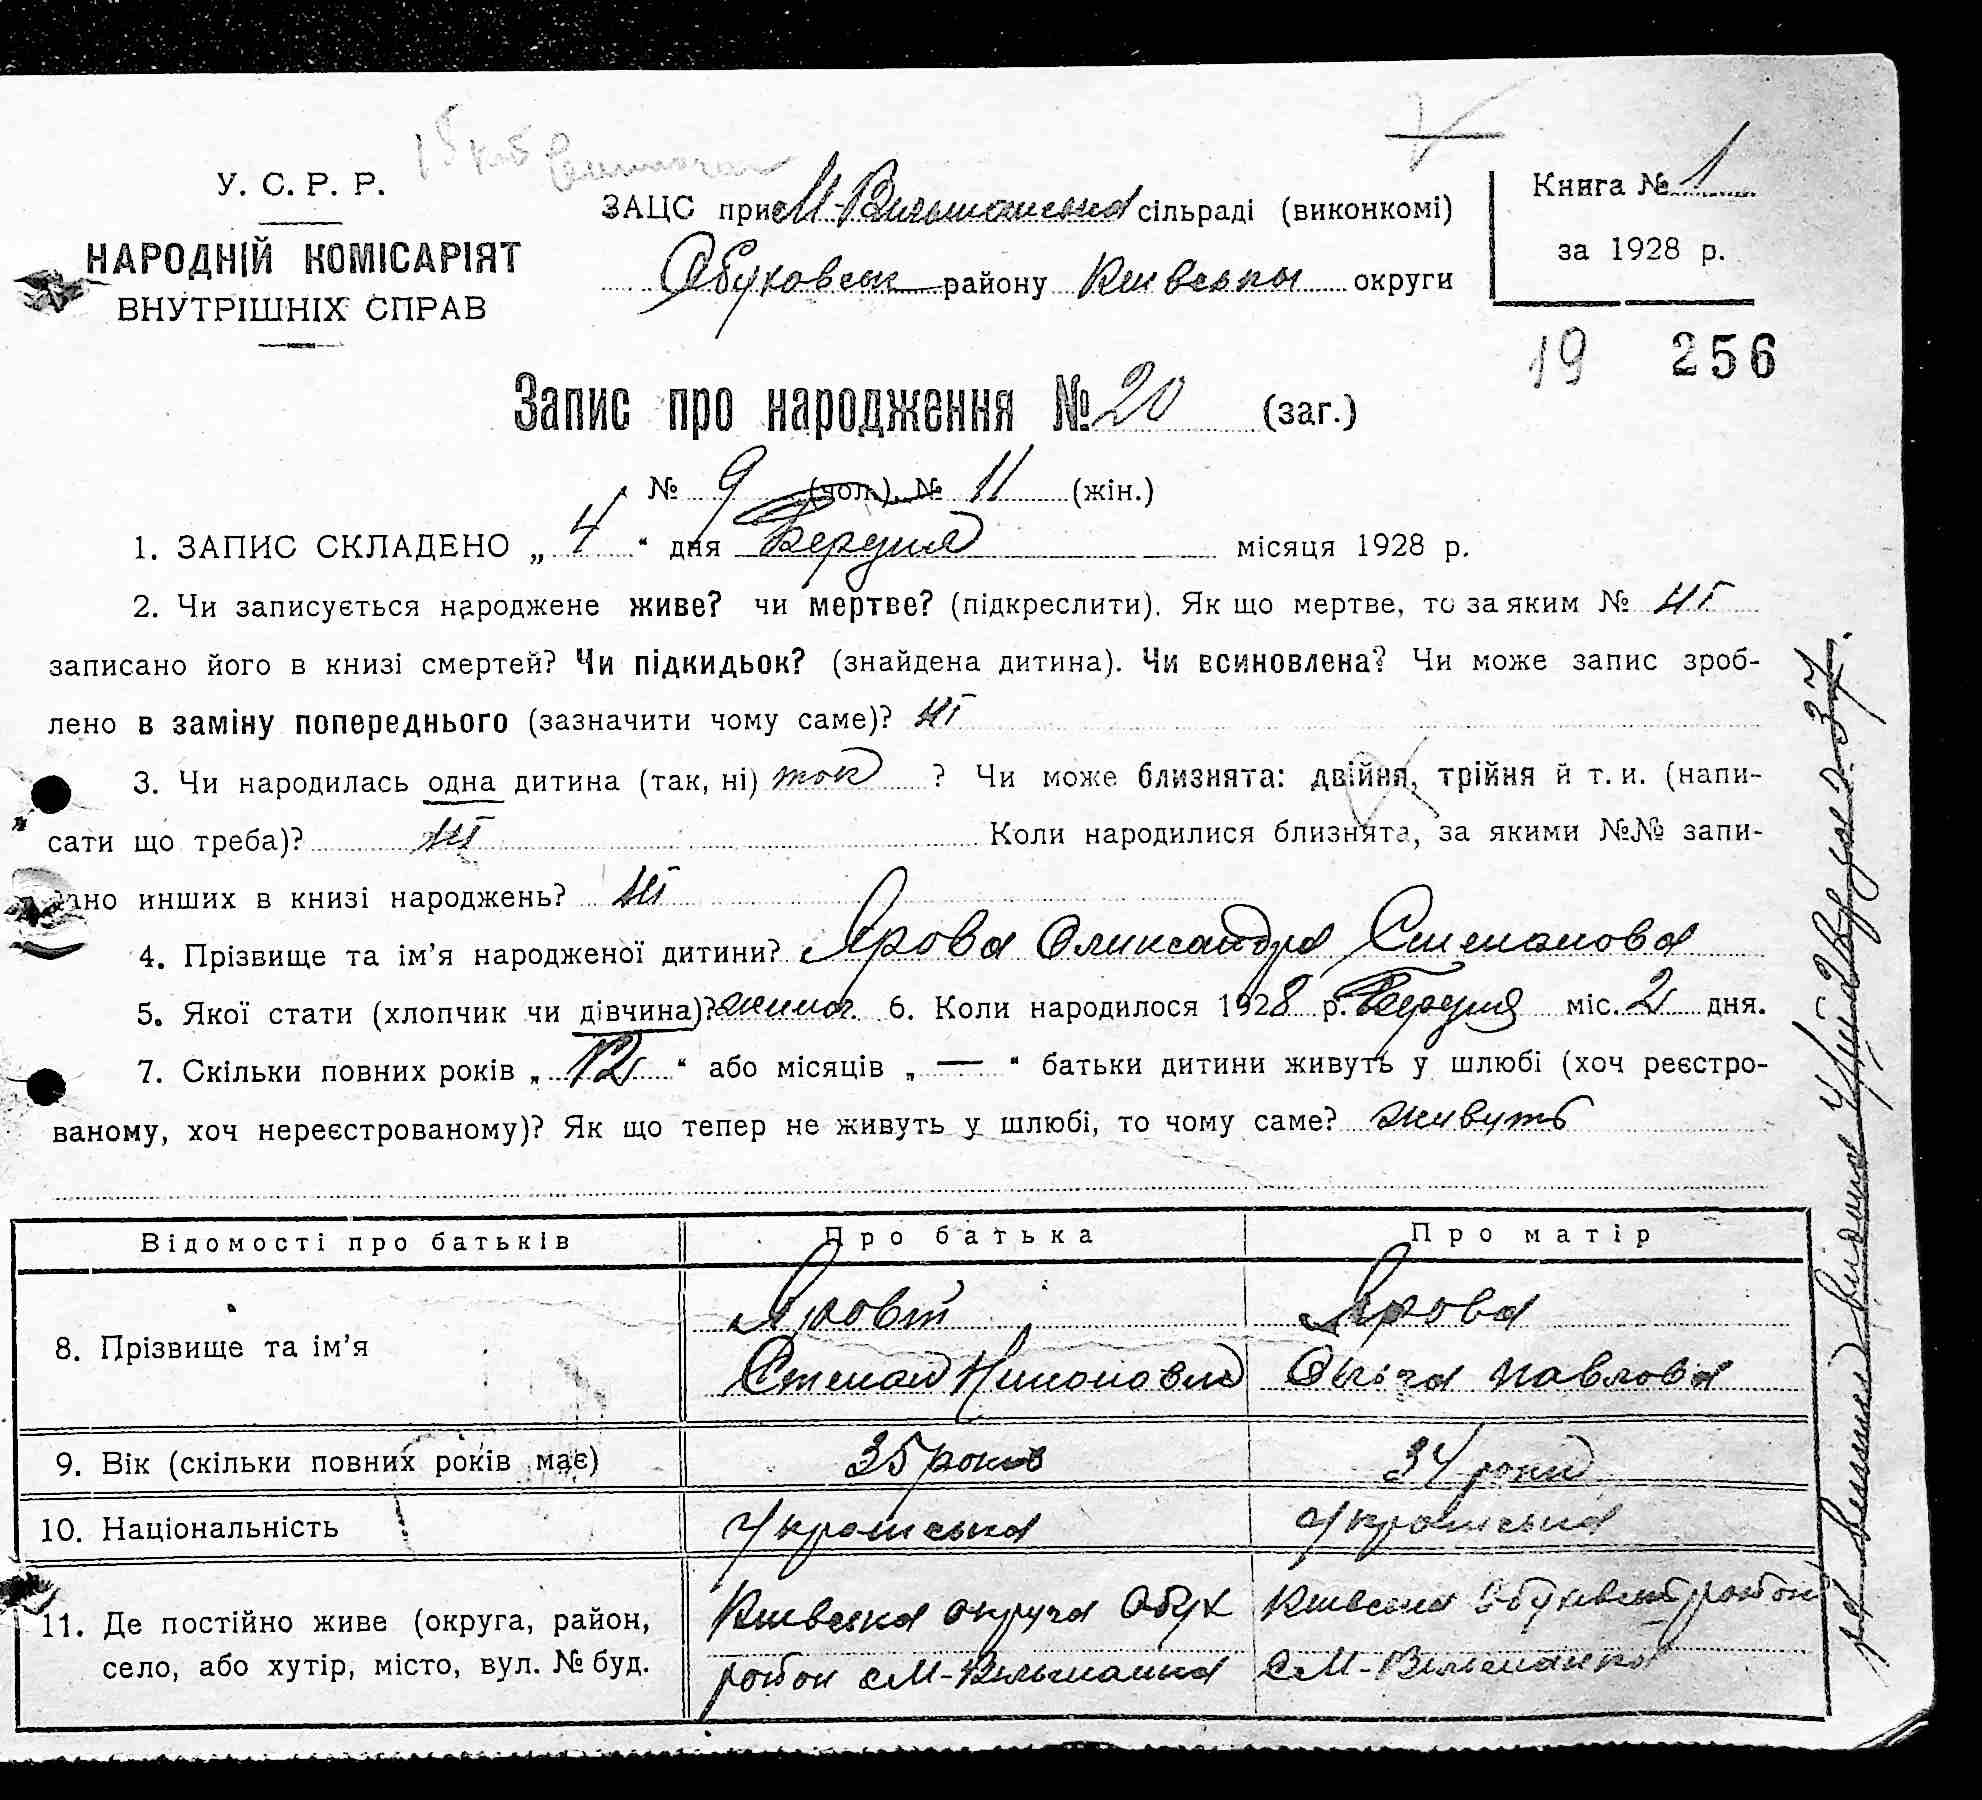 У. С. Р. Р.
НАРОДНІЙ КОМІСАРІЯТ
ВНУТРІШНІХ СПРАВ
ЗАЦС при М-Вільшанська сільраді (виконкомі)
Обуховськ району Київської округи
Книга № 1
за 1928 р.
19 256
Запис про народження № 20 (заг.)
№ 9 (чол.) № 11 (жін.)
1. ЗАПИС СКЛАДЕНО „ 4 “ дня Березня місяця 1928 р.
2. Чи записується народжене живе? чи мертве? (підкреслити). Як що мертве, то за яким № ні
записано його в книзі смертей? Чи підкидьок? (знайдена дитина). Чи всиновлена? Чи може запис зроб-
лено в заміну попереднього (зазначити чому саме)? ні
3. Чи народилась одна дитина (так, ні) так ? Чи може близнята: двійня, трійня й т. и. (напи-
сати що треба)? ні Коли народилися близнята, за якими №№ запи-
ано инших в книзі народжень? ні
4. Прізвище та ім’я народженої дитини? Ярова Олександра Степанова
5. Якої стати (хлопчик чи дівчина)? жіноч. 6. Коли народилося 1928 р. Березня міс. 2 дня.
7. Скільки повних років „ 12 “ або місяців „ — “ батьки дитини живуть у шлюбі (хоч реєстро-
ваному, хоч нереєстрованому)? Як що тепер не живуть у шлюбі, то чому саме? живуть
Відомості про батьків Про батька Про матір
8. Прізвище та ім’я
Яровий Ярова
Степан Никонович Ольга Павлова
9. Вік (скільки повних років має) 35 років 34 роки
10. Національність Українська Українська
11. Де постійно живе (округа, район,
село, або хутір, місто, вул. № буд.
Київська округа Обух Київська Обуховськ район
район с М-Вільшанка с М-Вільшанка